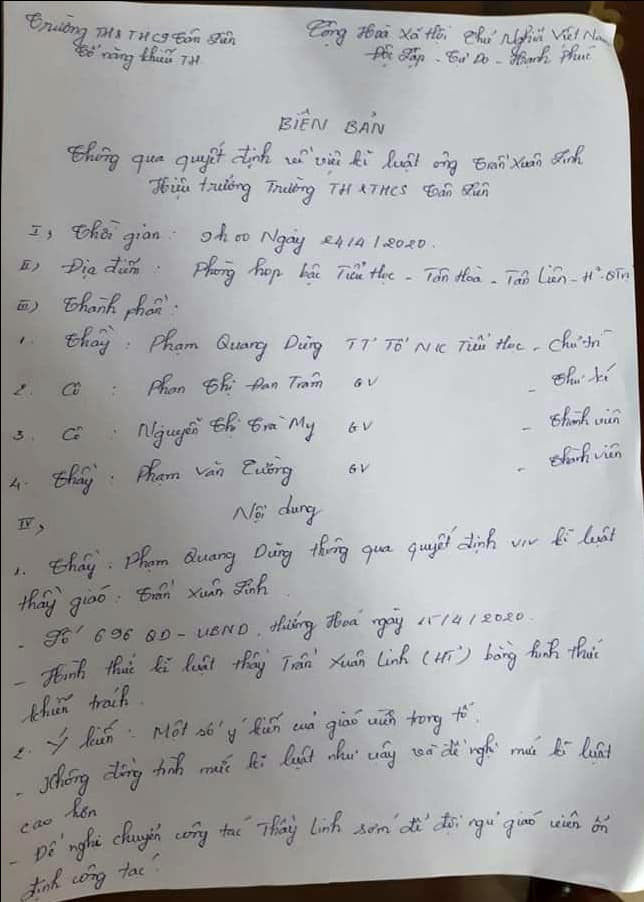 Trường TH & THCS Tân Liên
Tổ năng khiếu TH
Cộng Hoà Xã Hội Chủ Nghĩa Việt Na
Độc Lập - Tự Do - Hạnh Phúc
BIÊN BẢN
Thông qua quyết định về việc kỉ luật ông Trần Xuân Linh
Hiệu trưởng Trường TH & THCS Tân Liên
I, Thời gian: 9h00 Ngày 24/4/2020.
II) Địa điểm: Phòng họp bậc Tiểu Học - Tân Hoà - Tân Liên - H
III) Thành phần:
1. Thầy: Phạm Quang Dũng TT Tổ NK Tiểu Học - Chủ trì
2. Cô: Phan Thị Đan Trâm GV - Thư kí
3. Cô: Nguyễn Thị Trà My GV - Thành viên
4. Thầy: Phạm Văn Cường GV - Thành viên
IV, Nội dung
1. Thầy: Phạm Quang Dũng thông qua quyết định v/v kỉ luật
thầy giáo: Trần Xuân Linh.
- Số 696 QD - UBND, Hướng Hoá ngày 15/4/2020.
- Hình thức kỉ luật thầy Trần Xuân Linh (HT) bằng hình thức
khiển trách.
2. Ý kiến: Một số ý kiến của giáo viên trong tổ.
- Không đồng tình mức kỉ luật như vậy và đề nghị mức kỉ luật
cao hơn
- Đề nghị chuyển công tác Thầy Linh sớm để đội ngũ giáo viên ổn
định công tác.